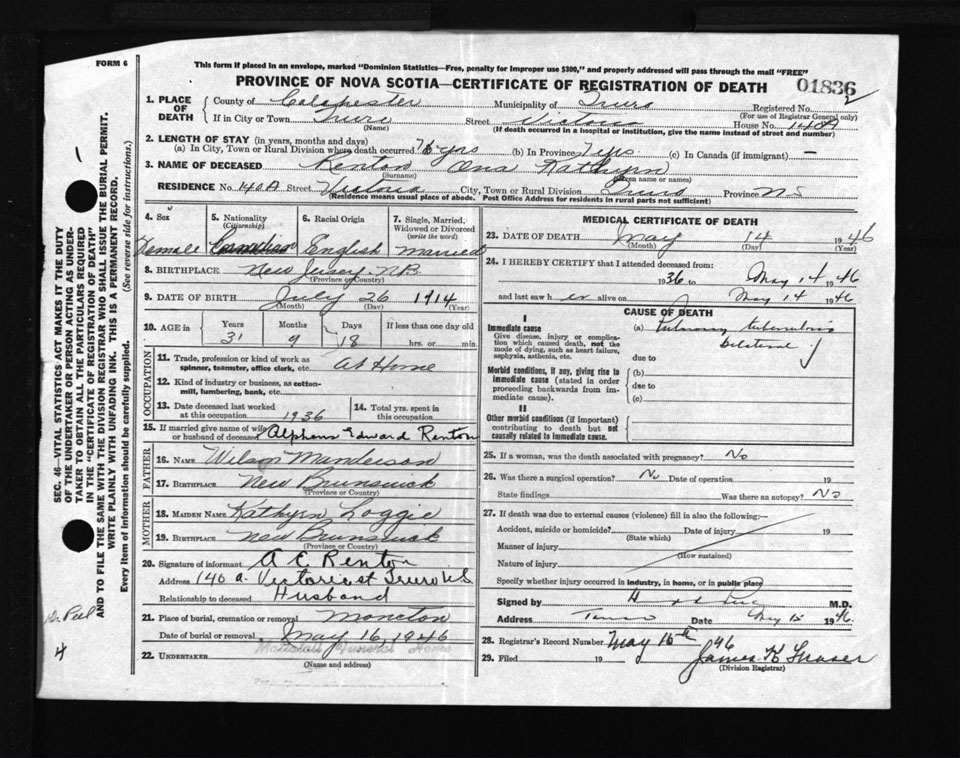 FORM 6
This form if placed in an envelope, marked "Dominion Statistics—Free, penalty for improper use $300," and properly addressed will pass through the mail "FREE"
PROVINCE OF NOVA SCOTIA—CERTIFICATE OF REGISTRATION OF DEATH
01836
1. PLACE OF DEATH
County of Colchester Municipality of Truro Registered No.
(For use of Registrar General only)
If in City or Town Truro Street Victoria House No. 140A
(Name) (If death occurred in a hospital or institution, give the name instead of street and number)
2. LENGTH OF STAY (in years, months and days)
(a) In City, Town or Rural Division where death occurred yrs (b) In Province 7 yrs. (c) In Canada (if immigrant) —
3. NAME OF DECEASED Renton Ona Kathyrn
(Surname) (Given name or names)
RESIDENCE No. 140A Street Victoria City, Town or Rural Division Truro Province N S
(Residence means usual place of abode. Post Office Address for residents in rural parts not sufficient)
4. Sex
Female
5. Nationality
(Citizenship)
Canadian
6. Racial Origin
English
7. Single, Married, Widowed or Divorced
(write the word)
Married
8. BIRTHPLACE New Jersey. N.B.
(Province or Country)
9. DATE OF BIRTH July 26 1914
(Month) (Day) (Year)
10. AGE in Years Months Days If less than one day old
31 9 18 hrs. or min.
OCCUPATION
11. Trade, profession or kind of work as spinner, teamster, office clerk, etc. At Home
12. Kind of industry or business, as cotton-mill, lumbering, bank, etc.
13. Date deceased last worked at this occupation 1936
14. Total yrs. spent in this occupation
15. If married give name of wife or husband of deceased Alpheus Edward Renton
FATHER
16. NAME Wilson Manderson
17. BIRTHPLACE New Brunswick
(Province or Country)
MOTHER
18. MAIDEN NAME Kathyrn Loggie
19. BIRTHPLACE New Brunswick
(Province or Country)
20. Signature of informant A E Renton
Address 140 a. Victoria st Truro N.S
Relationship to deceased Husband
21. Place of burial, cremation or removal Moncton
Date of burial or removal May 16, 1946
22. UNDERTAKER Funeral Home
(Name and address)
MEDICAL CERTIFICATE OF DEATH
23. DATE OF DEATH May 14 1946
(Month) (Day) (Year)
24. I HEREBY CERTIFY that I attended deceased from:
1936 to May 14 1946
and last saw h er alive on May 14 1946
CAUSE OF DEATH
I
Immediate cause
Give disease, injury or complication which caused death, not the mode of dying, such as heart failure, asphyxia, asthenia, etc.
(a) Pulmonary tuberculosis
bilateral
due to
Morbid conditions, if any, giving rise to immediate cause (stated in order proceeding backwards from immediate cause).
(b)
due to
(c)
II
Other morbid conditions (if important) contributing to death but not causally related to immediate cause.
25. If a woman, was the death associated with pregnancy? No
26. Was there a surgical operation? No Date of operation 19
State findings Was there an autopsy? No
27. If death was due to external causes (violence) fill in also the following:—
Accident, suicide or homicide? Date of injury 19
(State which)
Manner of injury
(How sustained)
Nature of injury
Specify whether injury occurred in industry, in home, or in public place
Signed by M.D.
Address Truro Date May 15 1946.
28. Registrar's Record Number May 15th 46
29. Filed 19 James K Fraser
(Division Registrar)
SEC. 46—VITAL STATISTICS ACT MAKES IT THE DUTY
OF THE UNDERTAKER OR PERSON ACTING AS UNDER-
TAKER TO OBTAIN ALL THE PARTICULARS REQUIRED
IN THE "CERTIFICATE OF REGISTRATION OF DEATH"
AND TO FILE THE SAME WITH THE DIVISION REGISTRAR WHO SHALL ISSUE THE BURIAL PERMIT.
WRITE PLAINLY WITH UNFADING INK. THIS IS A PERMANENT RECORD.
Every item of information should be carefully supplied. (See reverse side for instructions.)
Peel
4